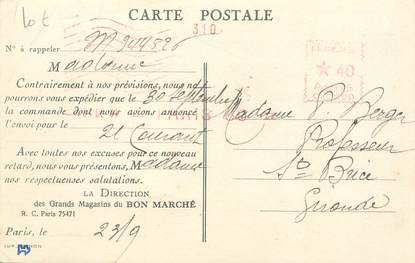 Lot
CARTE POSTALE
310
N° à rappeler M 944596
Madame
Contrairement à nos prévisions, nous ne
pourrons vous expédier que le 30 septembre
la commande dont nous avions annoncé
l'envoi pour le 21 Courant
Avec toutes nos excuses pour ce nouveau
retard, nous vous présentons, Madame
nos respectueuses salutations.
LA DIRECTION
des Grands Magasins du BON MARCHÉ
R. C. Paris 75471
Paris, le 23/9
★ 40
Madame P. Berger
Professeur
St Brice
Gironde